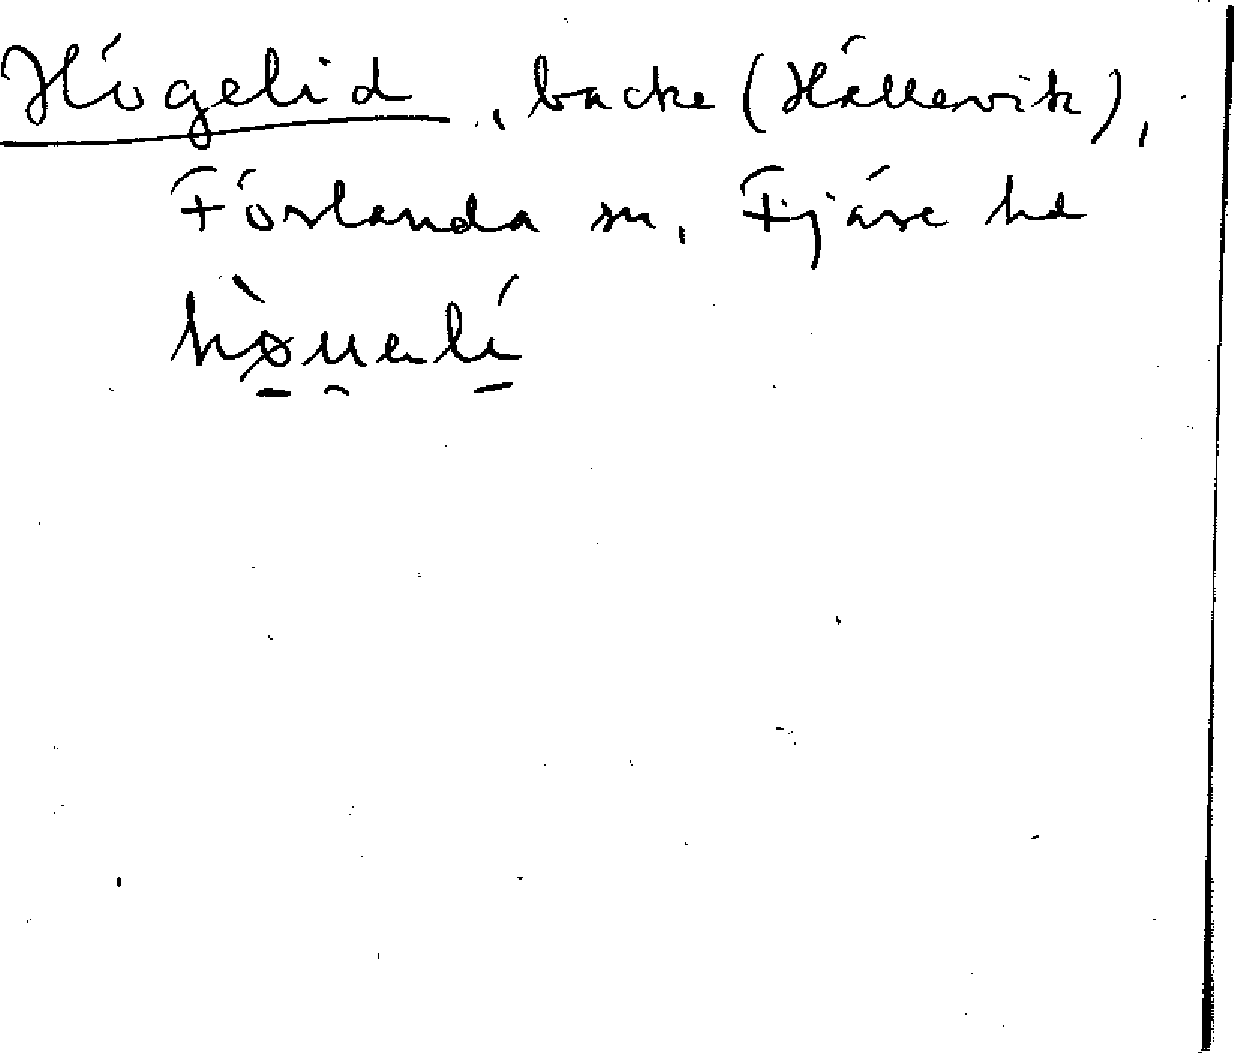 Högelid, backe (Hällevik),
Förlanda sn, Fjäre hd